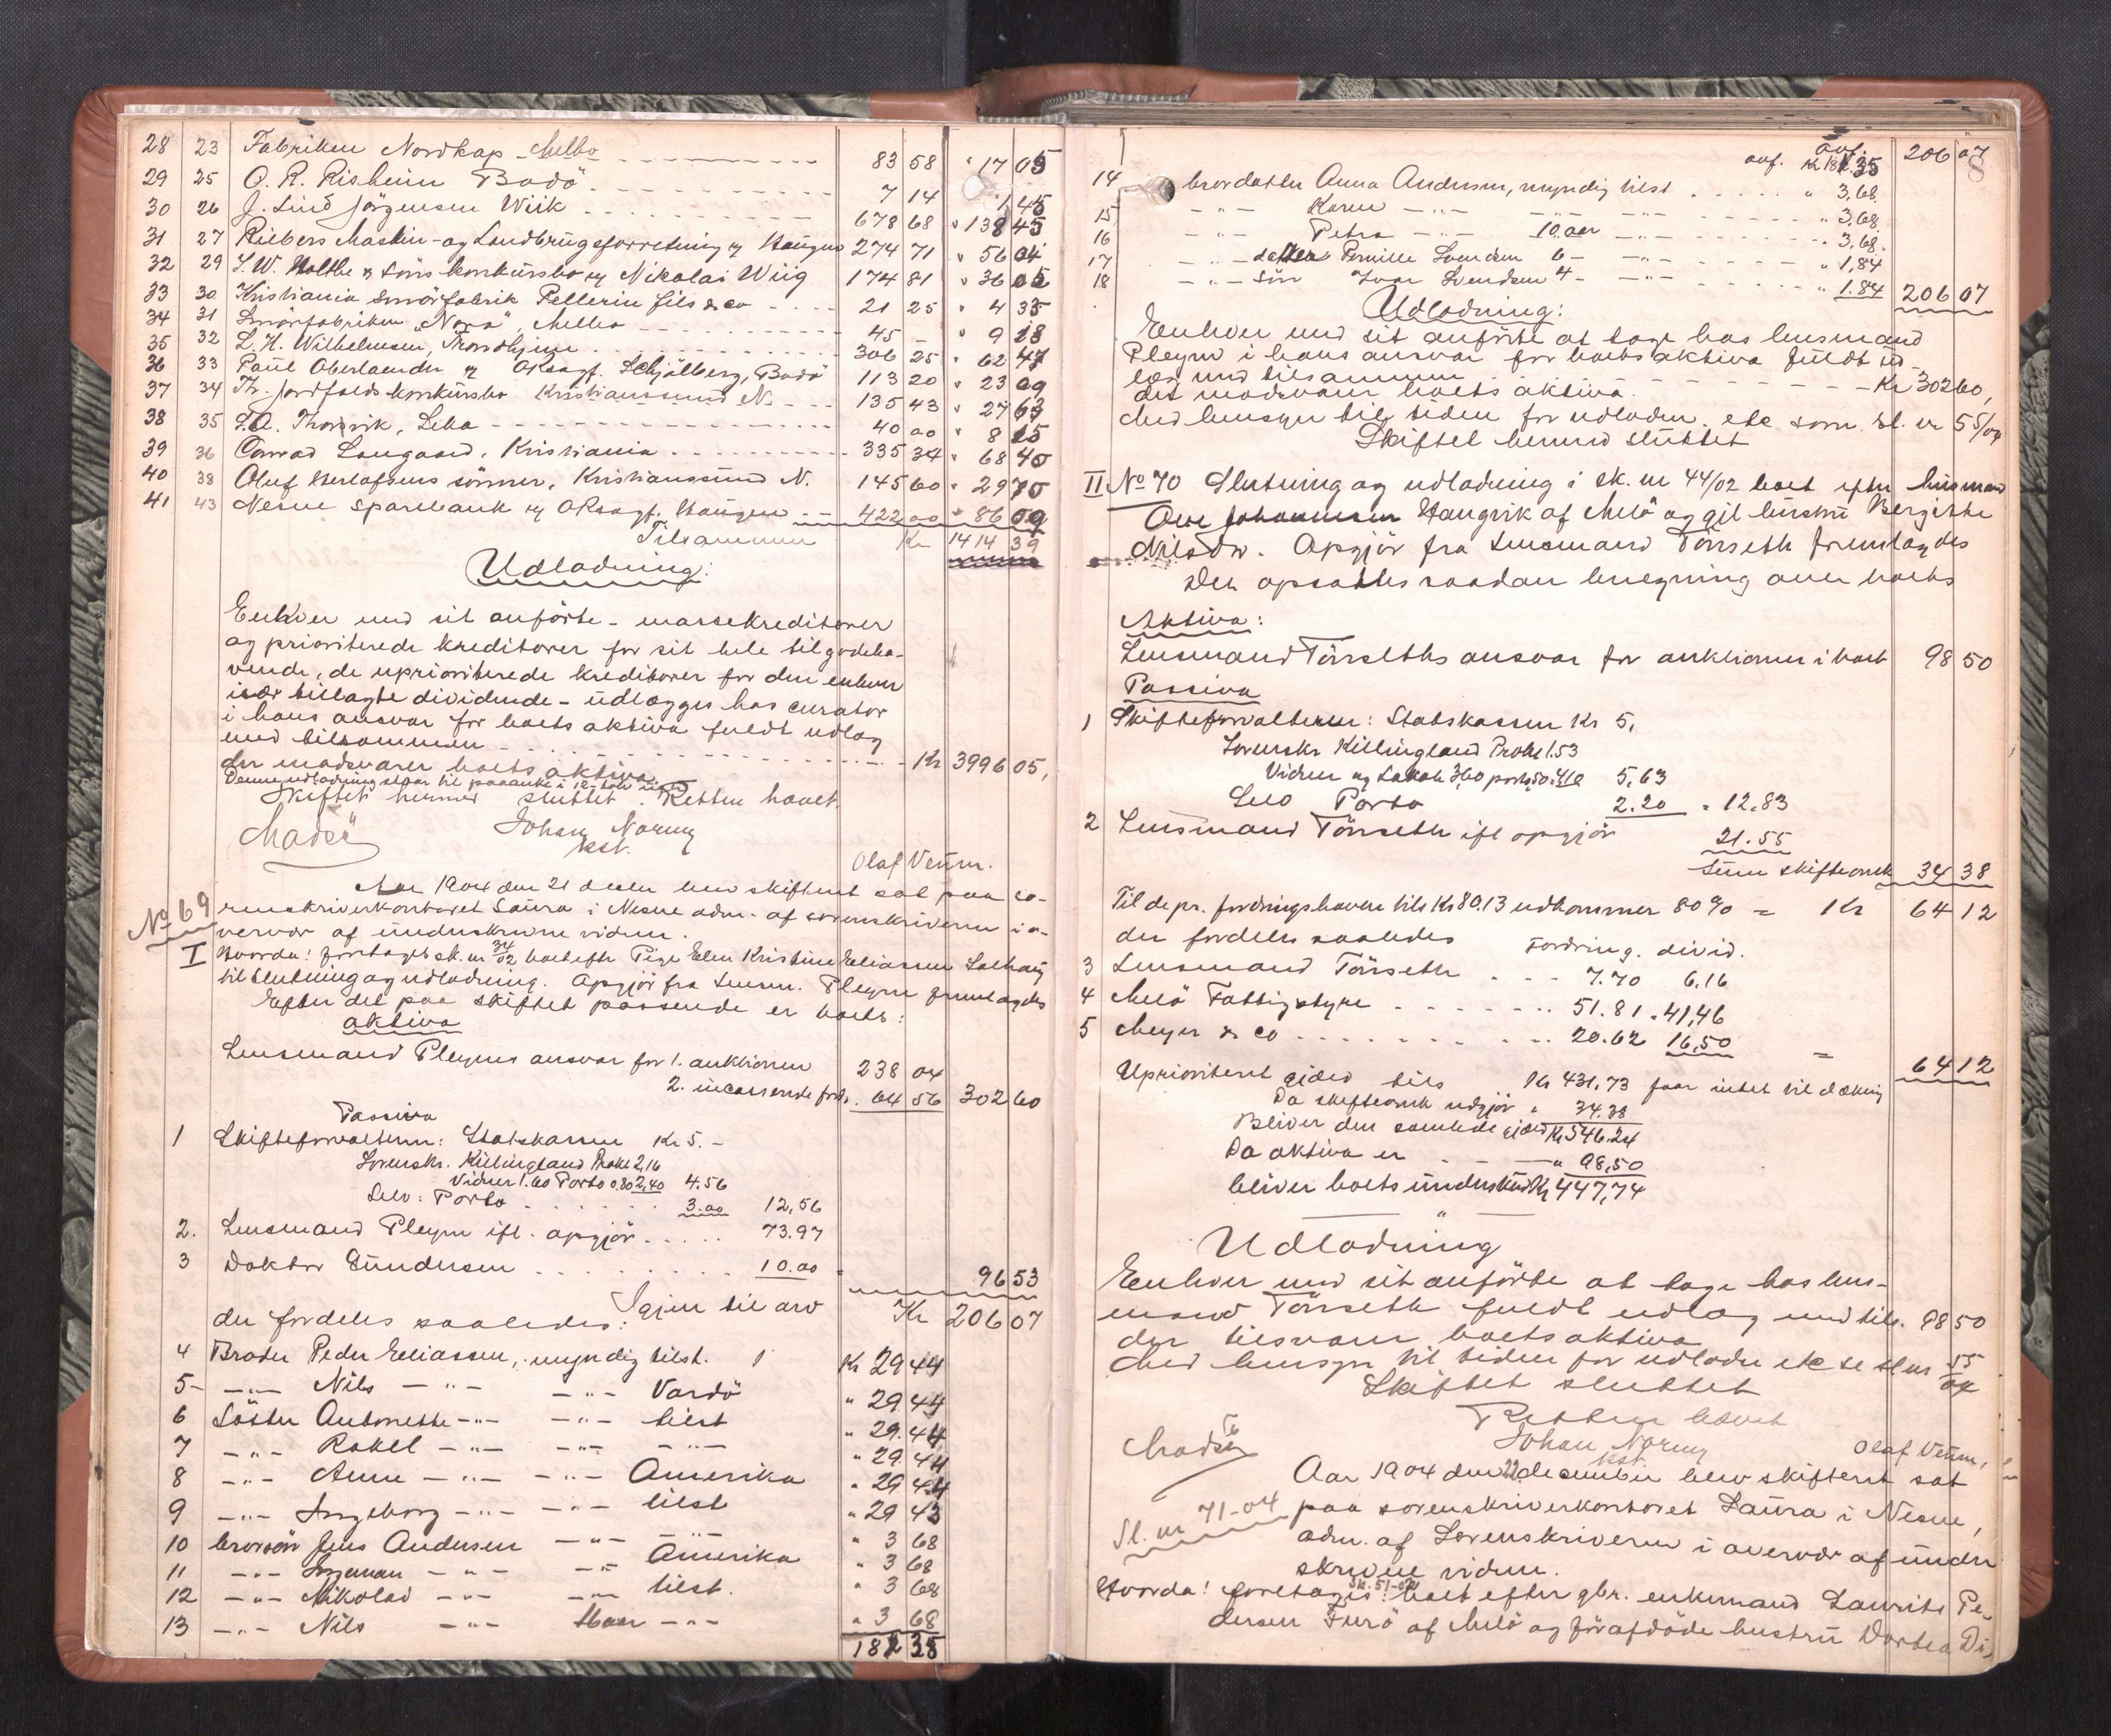 28 23 Fabriken Nordkap Melbo 83 58 " 17 05
29 25 O. R. Risheim Bodö 7 14 " 1 45
30 26 J. Lind Jörgensen Wiik 678 68 " 138 45
31 27 Riebers Maskin- og Landbrugsforretning v Haugen 274 71 " 56 04
32 29 S. W. Holthe & Söns konkursbo v Nikolai Wiig 174 81 " 36 05
33 30 Kristiania Smörfabrik Pellerin fils & co 21 25 " 4 35
34 31 Smörfabriken "Nora", Melbo 45 - " 9 18
35 32 L. H. Wilhelmsen, Throndhjem 306 25 " 62 47
36 33 Paul Oberlaender v ORsagf. Schjölberg, Bodö 113 20 " 23 09
37 34 Th. Jordfalds konkursbo Kristianssund N. 135 43 " 27 63
38 35 T. A. Thorsvik, Leba 40 00 " 8 15
39 36 Conrad Langaard, Kristiania 335 34 " 68 40
40 38 Oluf Herlofsens sönner, Kristianssund N. 145 60 " 29 70
41 43 Nesne Sparebank v ORsagf. Haugen 422 00 " 86 09
Tilsammen Kr 1414 39
Udlodning:
Enhver med sit anförte - massekreditorer
og prioriterede kreditorer for sit hele tilgodeha-
vende, de uprioriterede kreditorer for den enhver
især tillagte dividende - udlægges hos curator
i hans ansvar for boets aktiva fuldt udlæg
med tilsammen Kr 3996 05,
der modsvarer boets aktiva.
Denne udlodning staar til paaanke i 12
Skiftet hermed sluttet. Retten hævet.
Madsö Johan Normy
kst.
Olaf Vennn.
No 69 Aar 1904 den 21 decbr blev skifteret sat paa so-
renskriverkontoret Saura i Nesne adm. af sorenskriveren i o-
vervær af underskrevne vidner.
I Hvorda! foretages sk. nr 34/02 boet efter Pige Elen Kristine Eliassen Solhaug
til slutning og udlodning. Opgjör fra Lensm. Pleym fremlagdes
Efter det paa skiftet passerede er boets:
aktiva
Lensmand Pleyms ansvar for 1. auktionen 238 04
2. incasserede ford. 64 56 302 60
Passiva
1 Skifteforvalteren: Statskassen Kr 5. -
Sorenskr. Killingland Prokl 2,16
Vidner 1.60 Porto 0.80 2,40 4.56
Selv: Porto 3.00 12,56
2. Lensmand Pleym ifl. opgjör 73.97
3 Doktor Gundersen 10.00 96 53
Igjen til arv Kr 206 07
der fordeles saaledes:
4 Broder Peder Eliassen, myndig tilst. Kr 29 44
5 - " - Nils - " - - " - Vardö " 29 44
6 Söster Antonette - " - - " - tilst " 29.44
7 - " - Rakel - " - - " - - " - " 29.44
8 - " - Anne - " - - " - Amerika " 29 44
9 - " - Ingeborg - " - - " - tilst " 29 43
10 brorsön Jens Andersen - " - - " - " 3 68
11 - " - Ingeman - " - - " - Amerika " 3 68
12 - " - Nikolai - " - - " - tilst. " 3 68
13 - " - Nils - " - 16 aar - " - " 3 68
182 35
ovf. Kr 182.35 ovf. 206 07
8
14 brordatter Anna Andersen, myndig tilst " 3,68
15 - " - Karen - " - - " - - " - " 3,68
16 - " - Petra - " - 10 aar - " - " 3,68
17 - " - datter Pernille Svendsen 6 - - " - " 1,84
18 - " - sön Ivar Svendsen 4 - - " - " 1.84 206 07
Udlodning:
Enhver med sit anförte at tage hos lensmand
Pleym i hans ansvar for boets aktiva fuldt ud-
læg med tilsammen Kr 302 60,
det modsvarer boets aktiva.
Med hensyn til tiden for udlodn. etc som sl. nr 55/04
Skiftet hermed sluttet
II No 70 Slutning og udlodning i sk. nr 44/02 boet efter husmand
Ove Johannesen Haugvik af Melö og gjl hustru Bergitte
Nilsdr. Opgjör fra Lensmand Tönseth fremlagdes
Der opsattes saadan beregning over boets
Aktiva:
Lensmand Tönseths ansvar for auktionen i boet 98 50
Passiva
1 Skifteforvalteren: Statskassen Kr 5,
Sorenskr Killingland Prokl 1.53
Vidner og Lokale 3,60 porto 50: 4,10 5,63
Selv Porto 2.20 " 12.83
2 Lensmand Tönseth ifl opgjör 21.55
Sum skifteomk 34 38
Til de pr. fordringshavere tils Kr 80.13 udkommer 80% = Kr 64 12
der fordeles saaledes Fordring. divid.
3 Lensmand Tönseth 7.70 6.16
4 Melö Fattigstyre 51.81 " 41,46
5 Meyer & Co 20.62 16,50 = 64 12
Uprioriteret gjæld tils Kr 431,73 faar intet til dækning
Da skifteomk udgjör " 34.38
Bliver den samlede gjæld Kr 546.24
Da aktiva er " 98,50
bliver boets underskud Kr 447,74
Udlodning
Enhver med sit anförte at tage hos lens-
mand Tönseth fuldt udlæg med tils. 98 50
der tilsvarer boets aktiva
Med hensyn til tiden for udlodn etc se sl nr 55/04
Skiftet sluttet
Retten hævet
Madsö Johan Normy
kst. Olaf Vennn,
Sl. nr 71-04 Aar 1904 den 22 december blev skifteret sat
paa sorenskriverkontoret Saura i Nesne,
adm. af Sorenskriveren i overvær af under-
skrevne vidner.
Hvorda! foretages Sk. 51-02 boet efter gbr. enkemand Laurits Pe-
dersen Furö af Melö og förafdöde hustru Dortea Di-